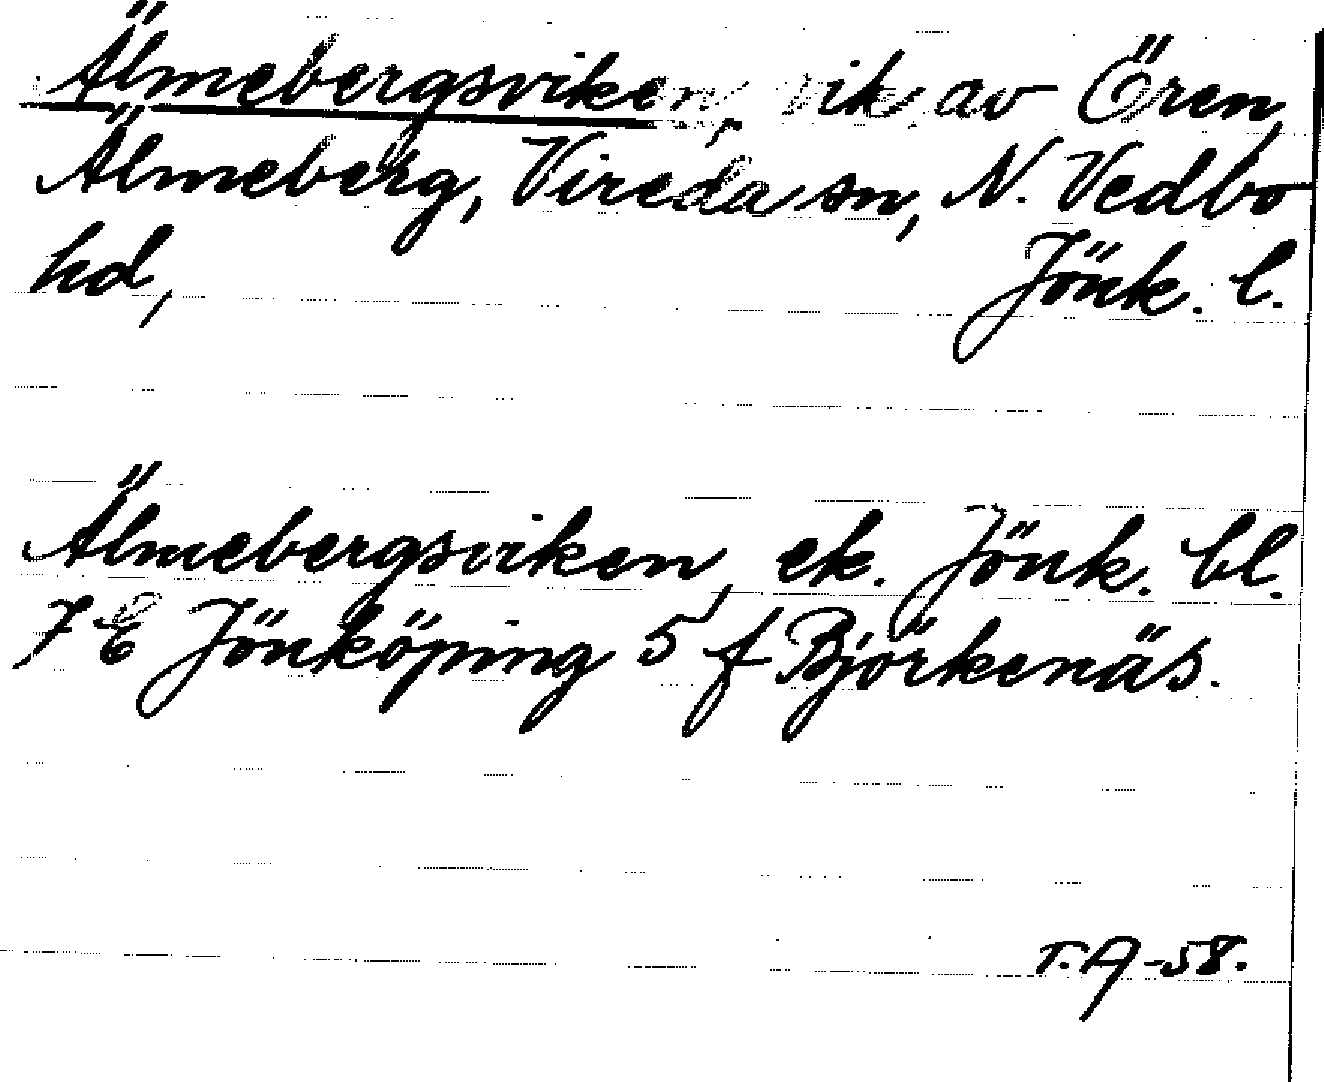 Älmebergsviken, vik av Ören,
Älmeberg, Vireda sn, N. Vedbo
hd,
Jönk. l.
Älmebergsviken, ek. Jönk. bl.
7 E Jönköping 5 f Björkenäs.
T.A -58.